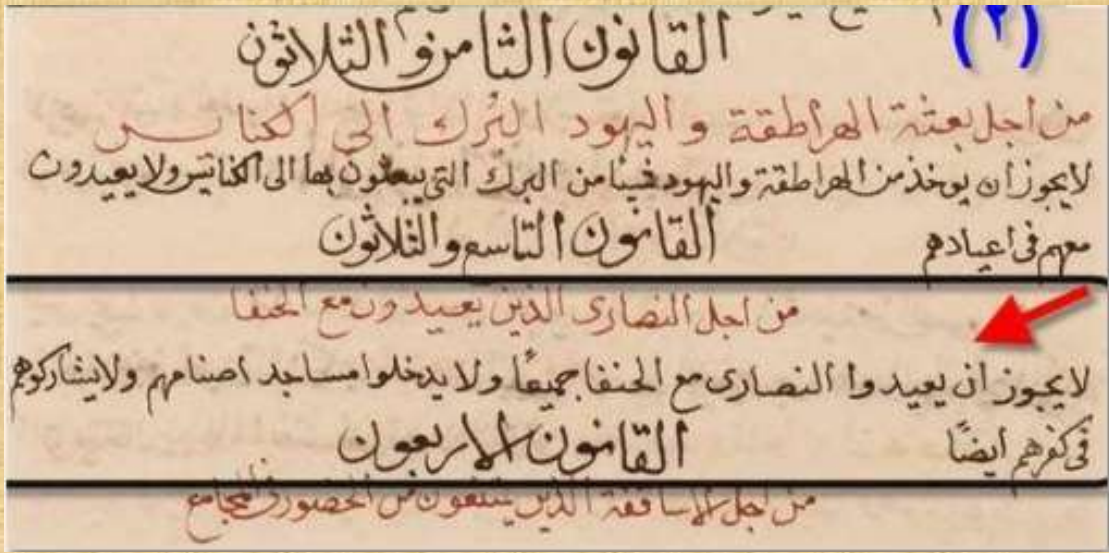 (٢)
القانون الثامن والثلاثون
من اجل بعثة الهراطقة واليهود البرك الى الكنايس
لا يجوز ان يوخذ من الهراطقة واليهود شيئا من البرك التي يبعثون بها الى الكنايس ولا يعيدون
معهم فى اعيادهم
القانون التاسع والثلاثون
من اجل النصارى الذين يعيدون مع الحنفا
لا يجوز ان يعيدوا النصارى مع الحنفا جميعًا ولا يدخلوا مساجد اصنامهم ولا يشاركوهم
فى كفرهم ايضًا
القانون الاربعون
من اجل الاساقفة الذين يمتنعون من الحضور فى المجامع